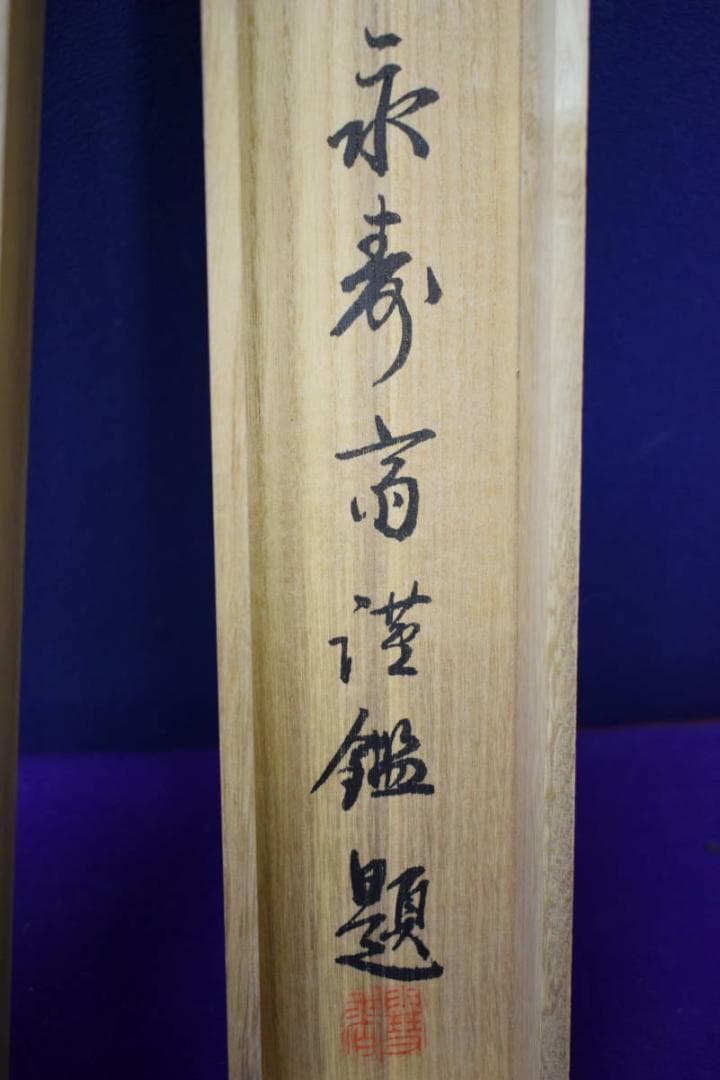 永寿斎謹鑑題